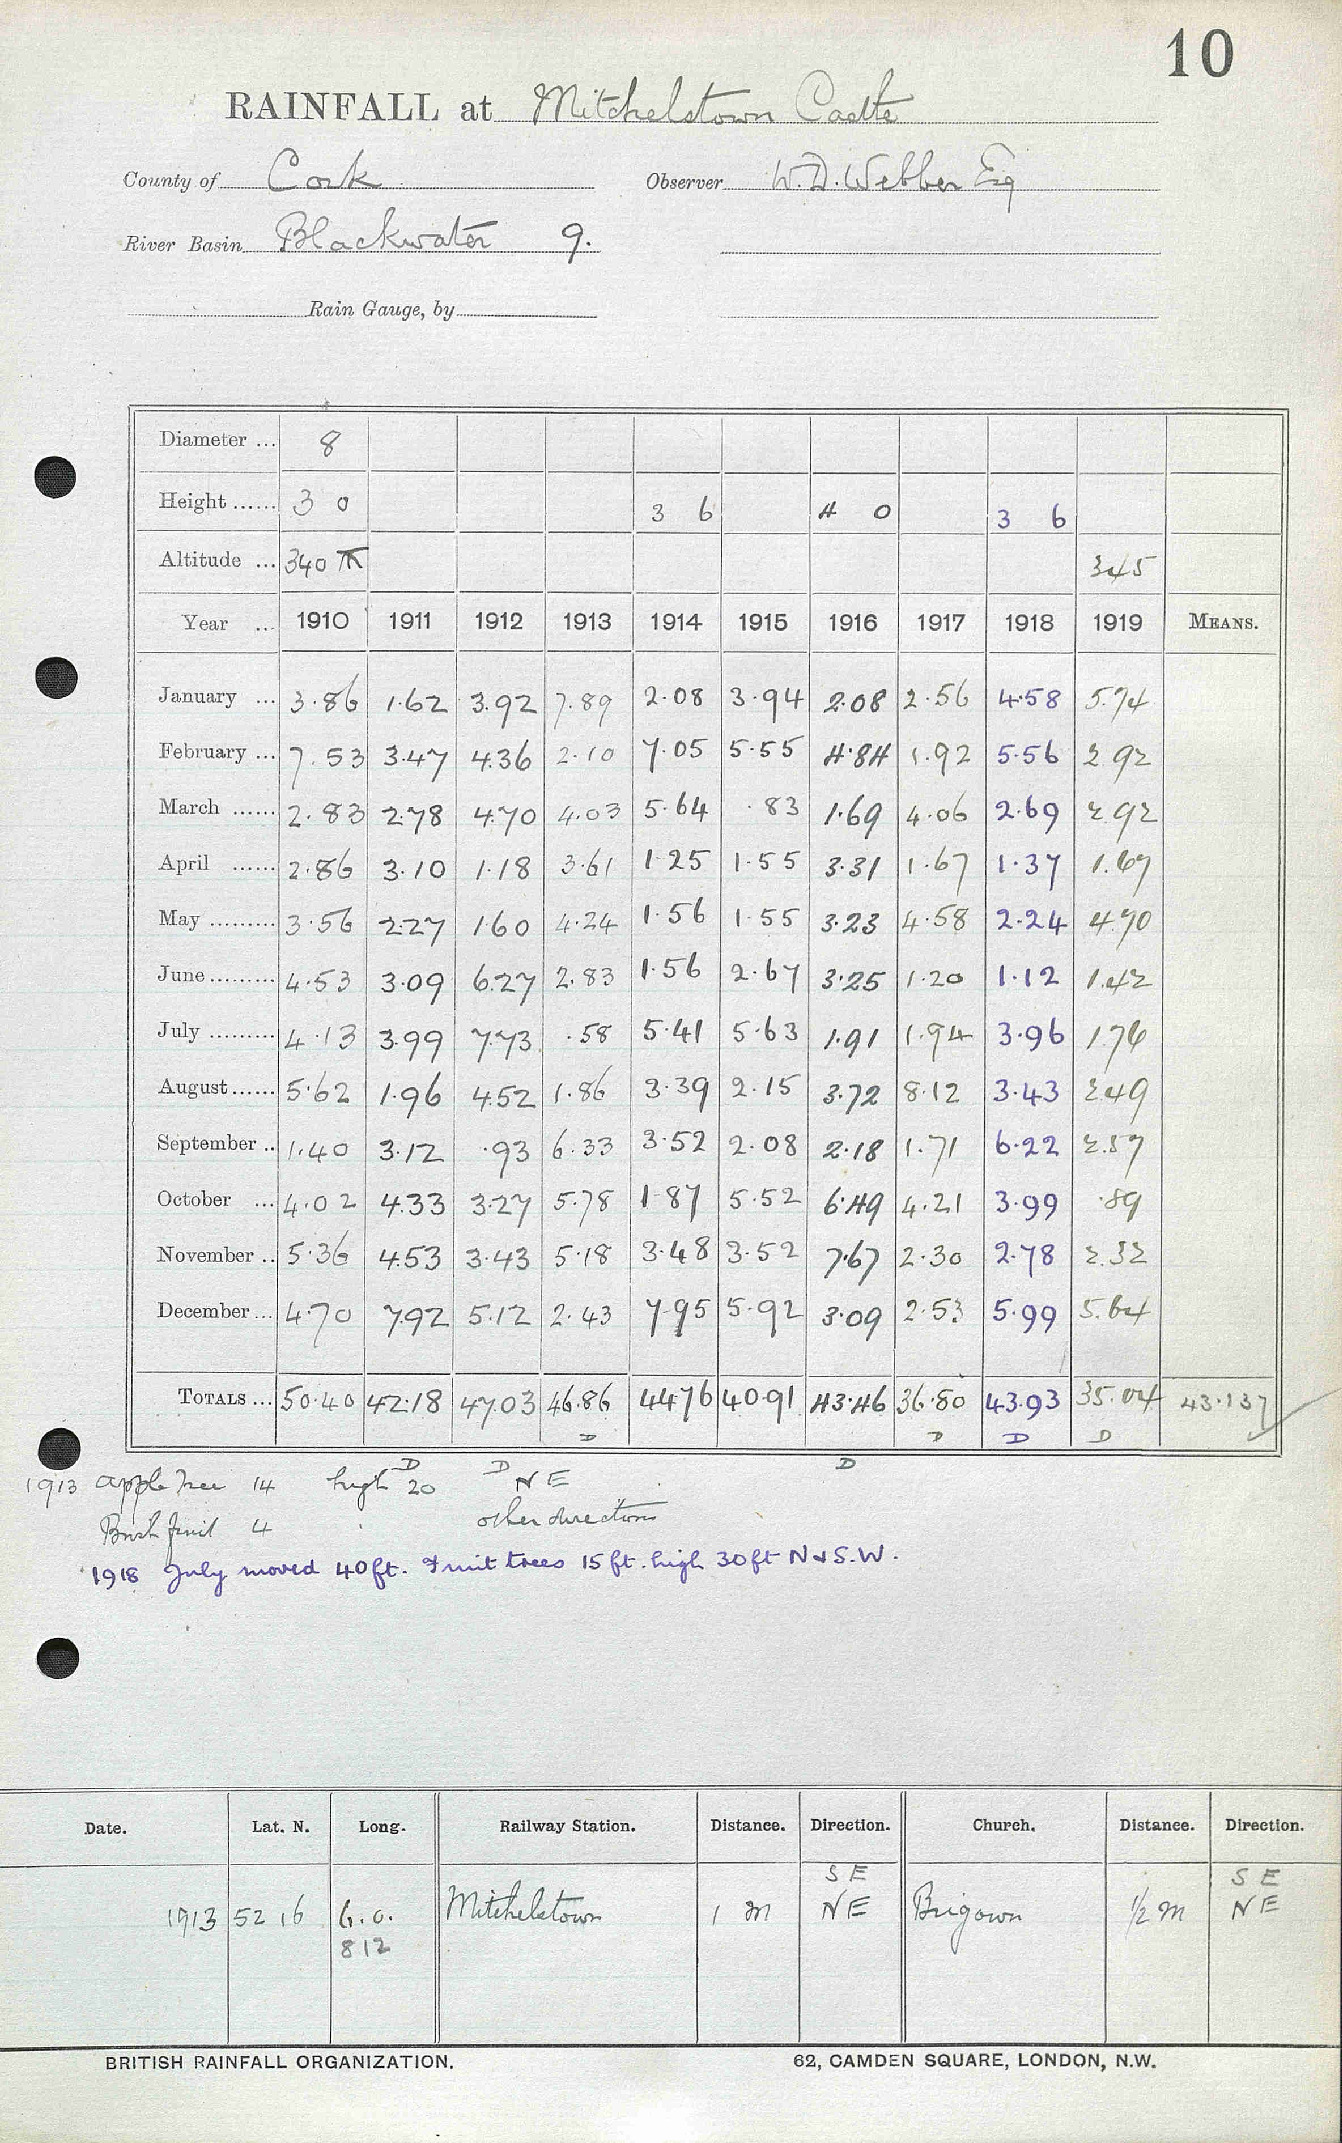 10
RAINFALL at Mitchelstown Castle
County of Cork Observer W. D. Webber Esq
River Basin Blackwater 9.
Rain Gauge, by
Diameter ... 8
Height ...... 3 0 3 6 4 0 3 6
Altitude ... 340 345
Year ... 1910 1911 1912 1913 1914 1915 1916 1917 1918 1919 MEANS.
January ... 3.86 1.62 3.92 7.89 2.08 3.94 2.08 2.56 4.58 5.74
February ... 7.53 3.47 4.36 2.10 7.05 5.55 4.84 1.92 5.56 2.92
March ...... 2.83 2.78 4.70 4.03 5.64 .83 1.69 4.06 2.69 2.92
April ...... 2.86 3.10 1.18 3.61 1.25 1.55 3.31 1.67 1.37 1.67
May ......... 3.56 2.27 1.60 4.24 1.56 1.55 3.23 4.58 2.24 4.70
June ......... 4.53 3.09 6.27 2.83 1.56 2.67 3.25 1.20 1.12 1.42
July ......... 4.13 3.99 7.73 .58 5.41 5.63 1.91 1.94 3.96 1.76
August ...... 5.62 1.96 4.52 1.86 3.39 2.15 3.72 8.12 3.43 2.49
September .. 1.40 3.12 .93 6.33 3.52 2.08 2.18 1.71 6.22 2.57
October ... 4.02 4.33 3.27 5.78 1.87 5.52 6.49 4.21 3.99 .89
November .. 5.36 4.53 3.43 5.18 3.48 3.52 7.67 2.30 2.78 2.32
December ... 4.70 7.92 5.12 2.43 7.95 5.92 3.09 2.53 5.99 5.64
TOTALS ... 50.40 42.18 47.03 46.86 44.76 40.91 43.46 36.80 43.93 35.04 43.137
D D D D
D D D
1913 Apple Tree 14 high 20 NE
Bush fruit 4 other directions
1918 July moved 40 ft. Fruit trees 15 ft. high 30 ft N & S.W.
Date. Lat. N. Long. Railway Station. Distance. Direction. Church. Distance. Direction.
S E S E
1913 52 16 Mitchelstown 1 m NE Brigown 1/2 m NE
8 12
BRITISH RAINFALL ORGANIZATION. 62, CAMDEN SQUARE, LONDON, N.W.